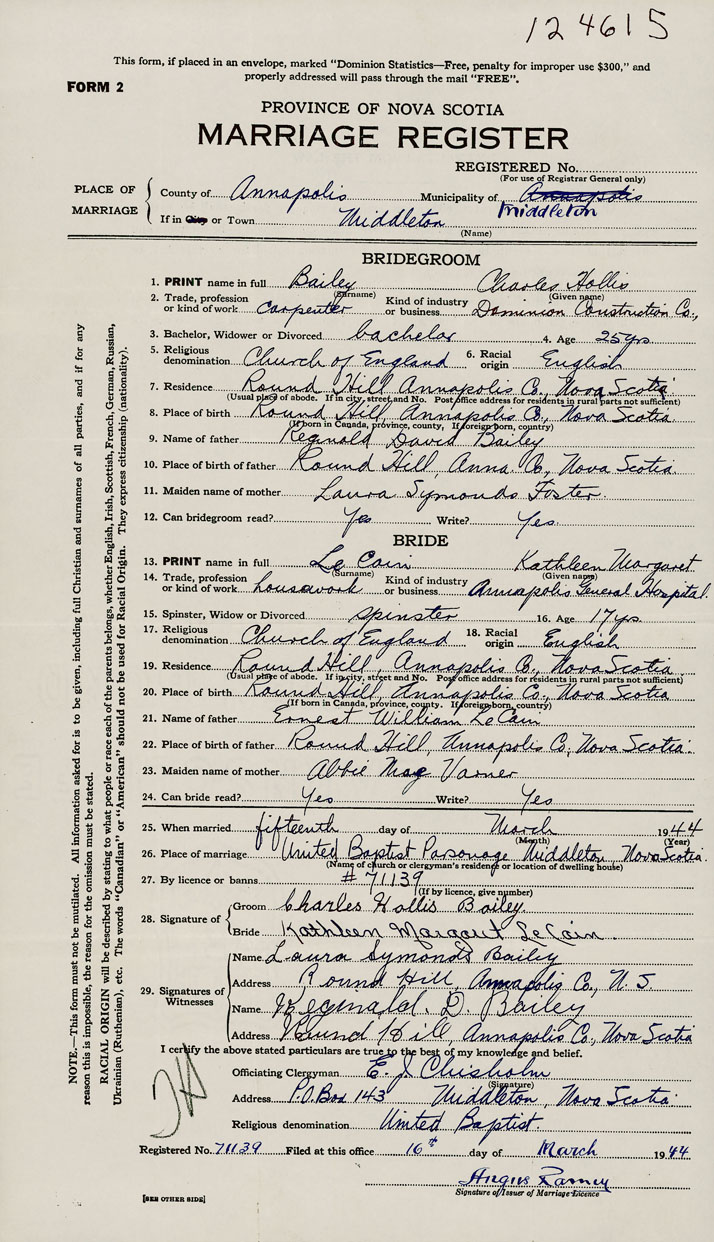 124615
This form, if placed in an envelope, marked "Dominion Statistics—Free, penalty for improper use $300," and
properly addressed will pass through the mail "FREE".
FORM 2
PROVINCE OF NOVA SCOTIA
MARRIAGE REGISTER
REGISTERED No.
(For use of Registrar General only)
PLACE OF MARRIAGE
County of Annapolis Municipality of Annapolis Middleton
If in City or Town Middleton
(Name)
BRIDEGROOM
1. PRINT name in full Bailey Charles Hollis
(Surname) (Given name)
2. Trade, profession or kind of work carpenter Kind of industry or business Dominion Construction Co.,
3. Bachelor, Widower or Divorced bachelor 4. Age 25 yrs
5. Religious denomination Church of England 6. Racial origin English
7. Residence Round Hill Annapolis Co., Nova Scotia
(Usual place of abode. If in city, street and No. Post office address for residents in rural parts not sufficient)
8. Place of birth Round Hill, Annapolis Co., Nova Scotia
(If born in Canada, province, county, If foreign born, country)
9. Name of father Reginald David Bailey
10. Place of birth of father Round Hill, Anna. Co., Nova Scotia.
11. Maiden name of mother Laura Symonds Foster.
12. Can bridegroom read? Yes Write? Yes.
BRIDE
13. PRINT name in full Le Cain Kathleen Margaret
(Surname) (Given name)
14. Trade, profession or kind of work housework Kind of industry or business Annapolis General Hospital.
15. Spinster, Widow or Divorced spinster 16. Age 17 yrs.
17. Religious denomination Church of England 18. Racial origin English
19. Residence Round Hill, Annapolis Co., Nova Scotia
(Usual place of abode. If in city, street and No. Post office address for residents in rural parts not sufficient)
20. Place of birth Round Hill, Annapolis Co., Nova Scotia
(If born in Canada, province, county. If foreign born, country)
21. Name of father Ernest William LeCain
22. Place of birth of father Round Hill, Annapolis Co., Nova Scotia.
23. Maiden name of mother Abbie Mae Varner
24. Can bride read? Yes Write? Yes
25. When married fifteenth day of March 1944
(Month) (Year)
26. Place of marriage United Baptist Parsonage Middleton, Nova Scotia.
(Name of church or clergyman's residence or location of dwelling house)
27. By licence or banns # 71139
(If by licence, give number)
28. Signature of
Groom Charles Hollis Bailey.
Bride Kathleen Margaret LeCain.
29. Signatures of Witnesses
Name Laura Symonds Bailey
Address Round Hill, Annapolis Co., N.S.
Name Reginald. D. Bailey
Address Round Hill, Annapolis Co., Nova Scotia
I certify the above stated particulars are true to the best of my knowledge and belief.
Officiating Clergyman E. J. Chisholm
(Signature)
Address P.O. Box 143 Middleton, Nova Scotia.
Religious denomination United Baptist.
Registered No. 71139 Filed at this office 16th day of March 1944
Angus Ramey
Signature of Issuer of Marriage Licence
[SEE OTHER SIDE]
NOTE.—This form must not be mutilated. All information asked for is to be given, including full Christian and surnames of all parties, and if for any
reason this is impossible, the reason for the omission must be stated.
RACIAL ORIGIN will be described by stating to what people or race each of the parents belongs, whether English, Irish, Scottish, French, German, Russian,
Ukrainian (Ruthenian), etc. The words "Canadian" or "American" should not be used for Racial Origin. They express citizenship (nationality).